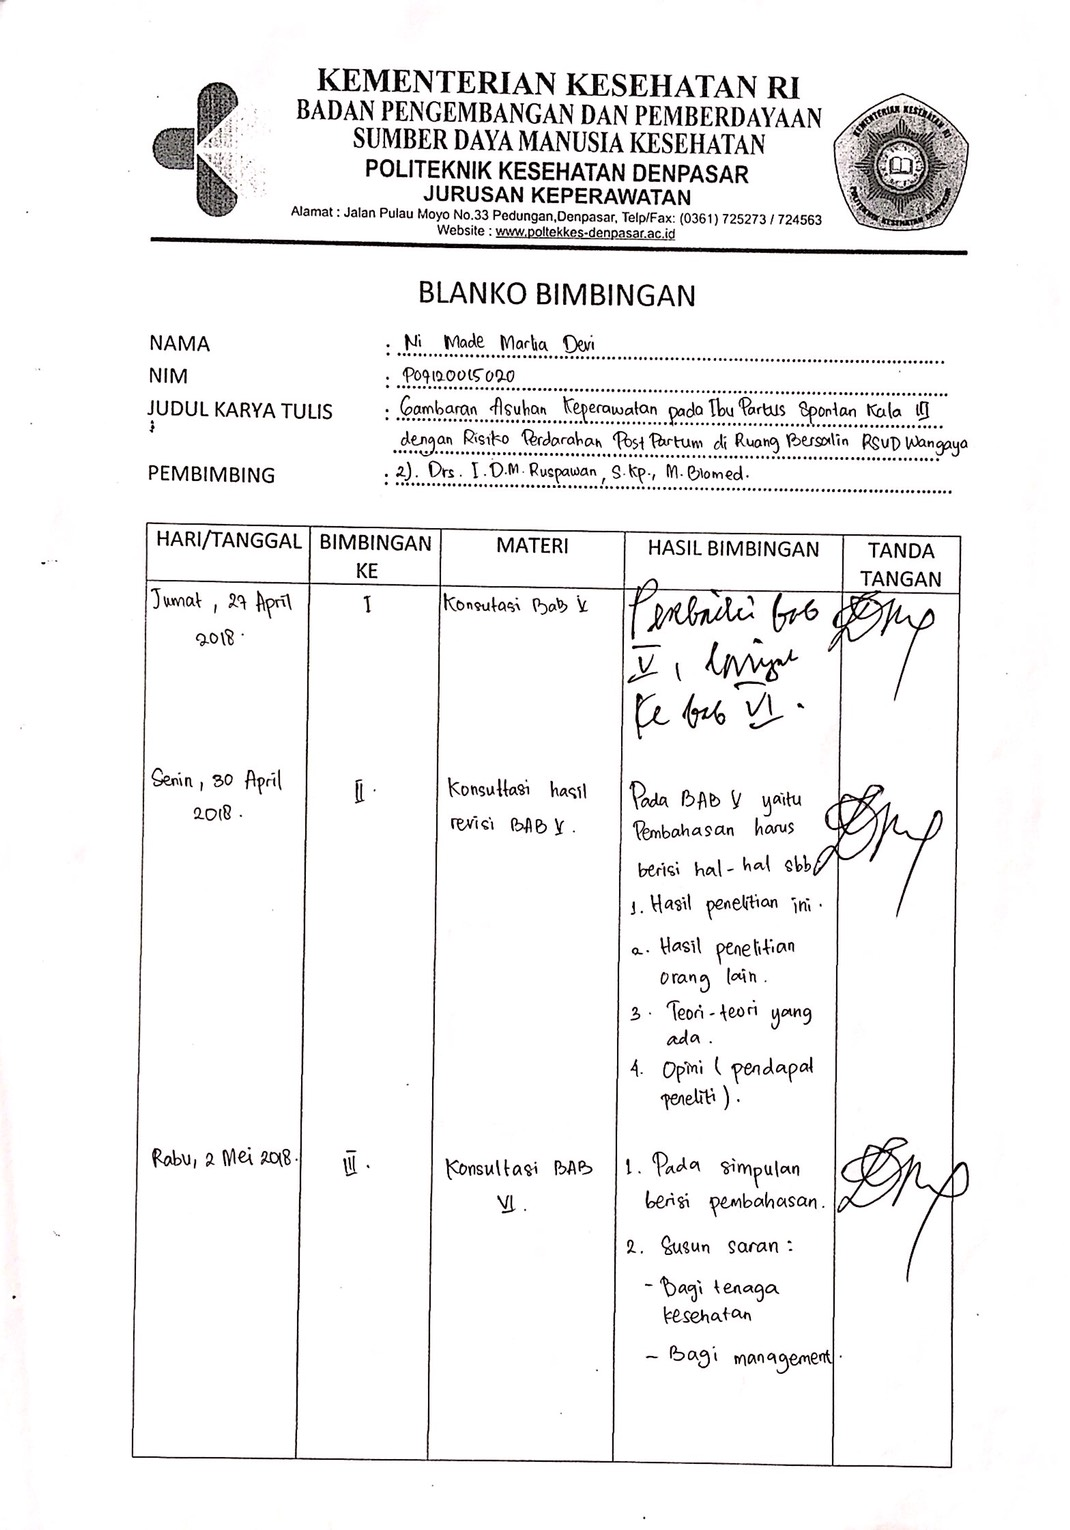 KEMENTERIAN KESEHATAN RI
BADAN PENGEMBANGAN DAN PEMBERDAYAAN
SUMBER DAYA MANUSIA KESEHATAN
POLITEKNIK KESEHATAN DENPASAR
JURUSAN KEPERAWATAN
Alamat : Jalan Pulau Moyo No.33 Pedungan,Denpasar, Telp/Fax: (0361) 725273 / 724563
Website : www.poltekkes-denpasar.ac.id
KEMENTERIAN KESEHATAN RI
POLITEKNIK KESEHATAN DENPASAR
BLANKO BIMBINGAN
NAMA : Ni Made Marlia Devi
NIM : P07120015020
JUDUL KARYA TULIS : Gambaran Asuhan Keperawatan pada Ibu Partus Spontan Kala III
: dengan Risiko Perdarahan Post Partum di Ruang Bersalin RSUD Wangaya
PEMBIMBING : 2). Drs. I.D.M. Ruspawan, S.Kp., M. Biomed.
HARI/TANGGAL BIMBINGAN KE MATERI HASIL BIMBINGAN TANDA TANGAN
Jumat, 27 April 2018. I Konsutasi Bab V
Perbaiki bab
V, 
Ke bab VI.
Senin, 30 April 2018. II. Konsultasi hasil revisi BAB V.
Pada BAB V yaitu
Pembahasan harus
berisi hal-hal sbb
1. Hasil penelitian ini.
2. Hasil penelitian
orang lain.
3. Teori-teori yang
ada.
4. Opini (pendapat
peneliti).
Rabu, 2 Mei 2018. III. Konsultasi BAB VI.
1. Pada simpulan
berisi pembahasan.
2. Susun saran :
- Bagi tenaga
kesehatan
- Bagi management.